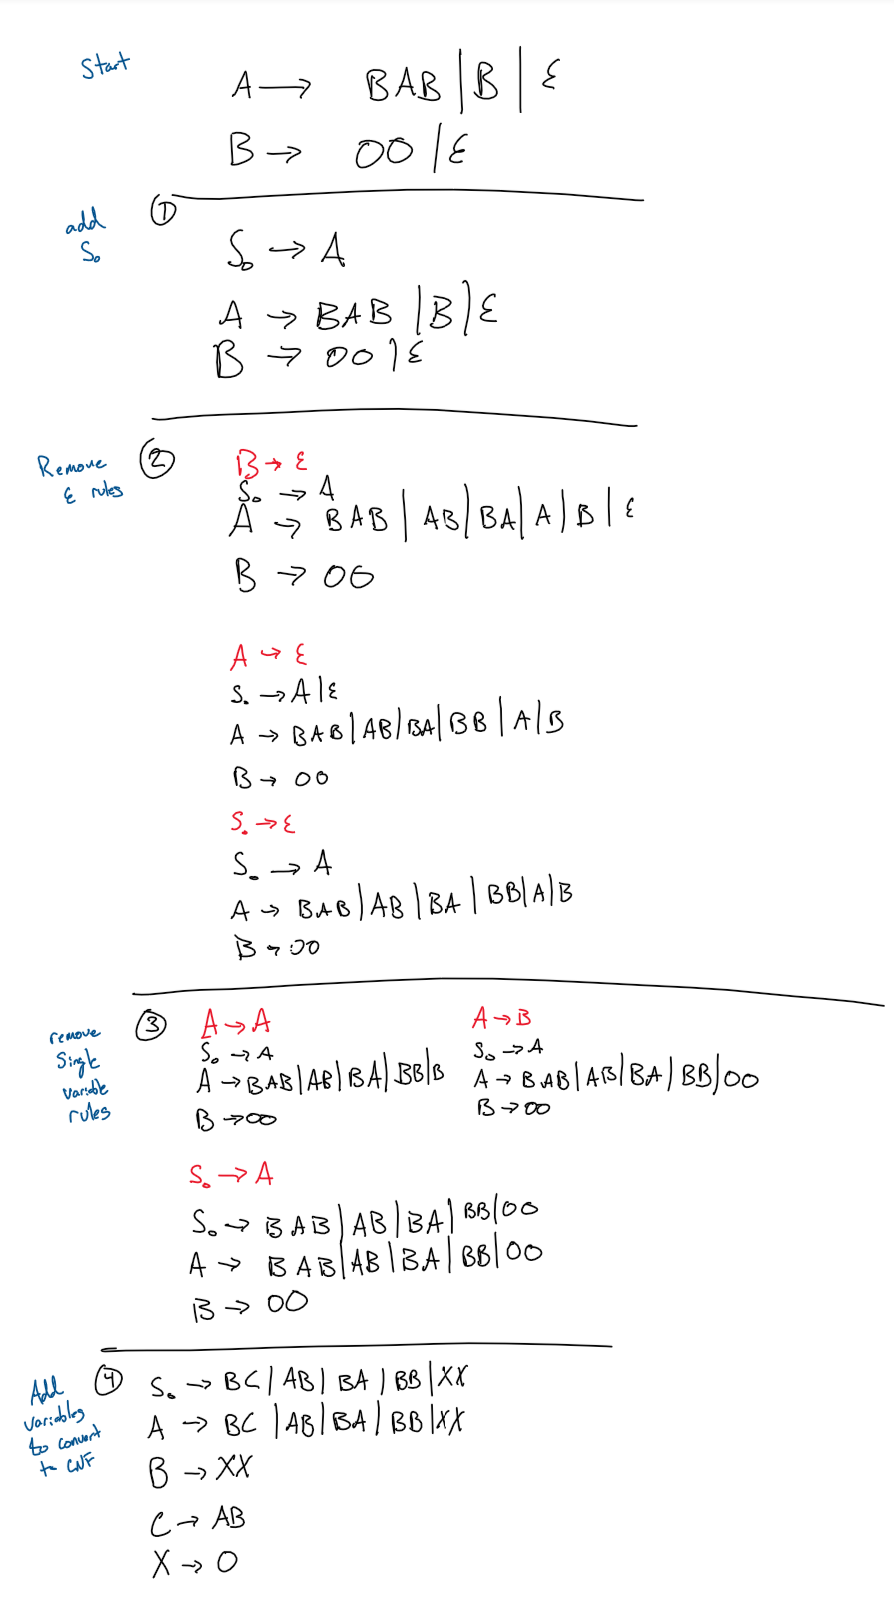 Start
A → BAB | B | ε
B → 00 | ε
add S₀
①
S₀ → A
A → BAB | B | ε
B → 00 | ε
Remove ε rules
②
B → ε
S₀ → A
A → BAB | AB | BA | A | B | ε
B → 00
A → ε
S₀ → A | ε
A → BAB | AB | BA | BB | A | B
B → 00
S₀ → ε
S₀ → A
A → BAB | AB | BA | BB | A | B
B → 00
remove Single variable rules
③
A → A
S₀ → A
A → BAB | AB | BA | BB | B
B → 00
A → B
S₀ → A
A → BAB | AB | BA | BB | 00
B → 00
S₀ → A
S₀ → BAB | AB | BA | BB | 00
A → BAB | AB | BA | BB | 00
B → 00
Add variables to convert to CNF
④
S₀ → BC | AB | BA | BB | XX
A → BC | AB | BA | BB | XX
B → XX
C → AB
X → 0